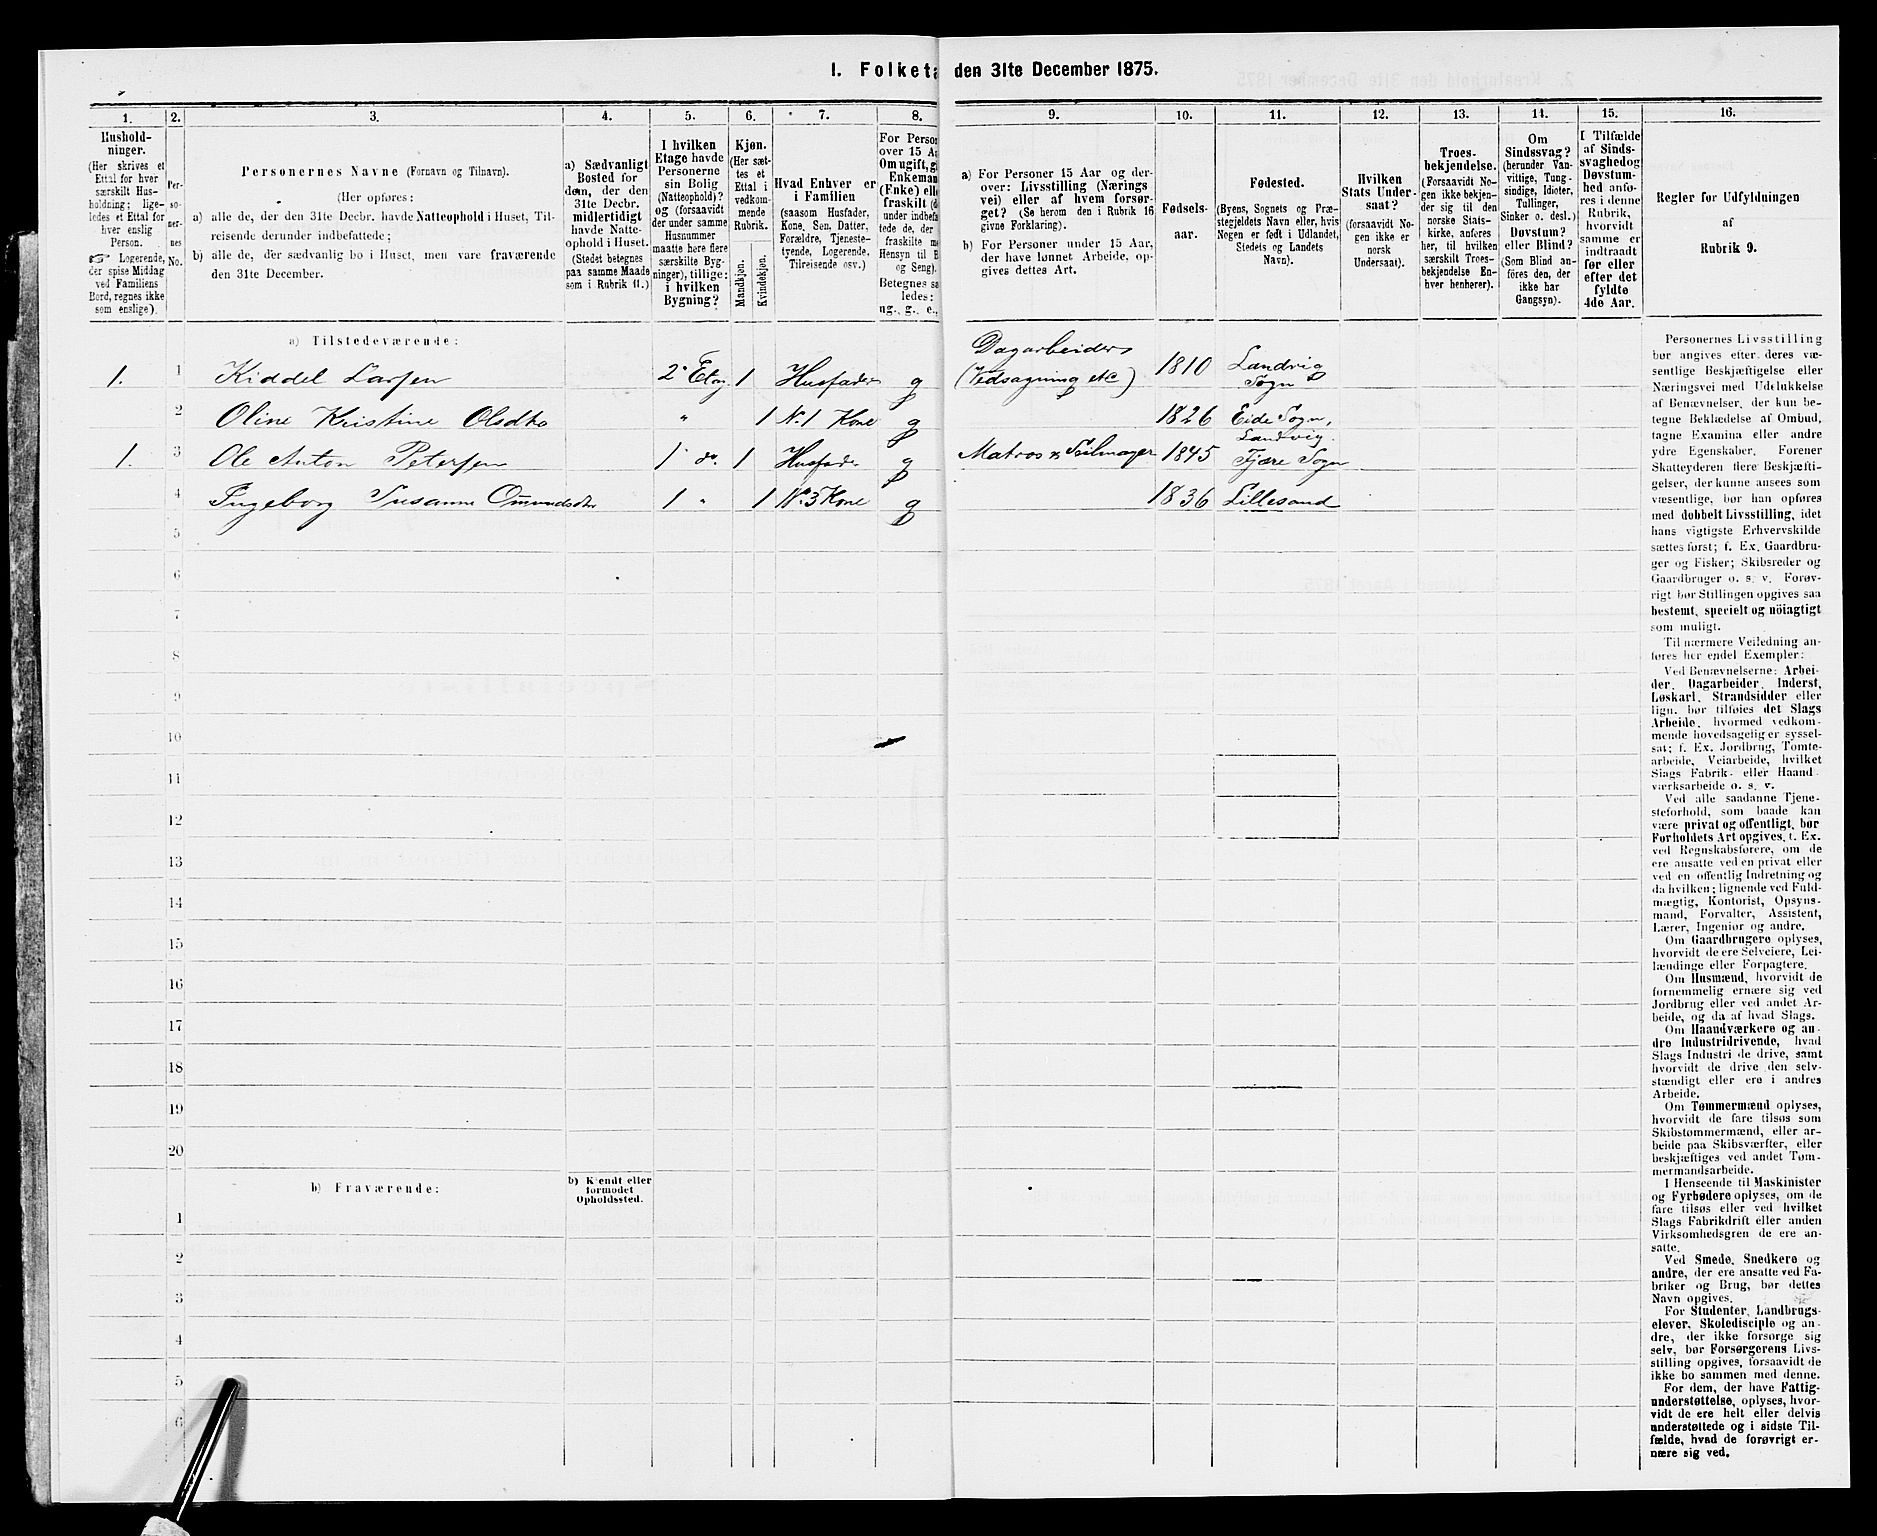 1. Folketæ den 31te December 1875.
1. 2. 3. 4. 5. 6. 7. 8. 9. 10. 11. 12. 13. 14. 15. 16.
Hushold-
ninger.
(Her skrives et
Ettal for hver
særskilt Hus-
holdning; lige-
ledes et Ettal for
hver enslig
Person.
☞ Logerende,
der spise Middag
ved Familiens
Bord, regnes ikke
som enslige).
Per-
so-
ner-
nes
No.
Personernes Navne (Fornavn og Tilnavn).
(Her opføres:
a) alle de, der den 31te Decbr. havde Natteophold i Huset, Til-
reisende derunder indbefattede;
b) alle de, der sædvanlig bo i Huset, men vare fraværende
den 31te December.
a) Sædvanligt
Bosted for
dem, der den
31te Decbr.
midlertidigt
havde Natte-
ophold i Huset.
(Stedet betegnes
paa samme Maade
som i Rubrik 11.)
I hvilken
Etage havde
Personerne
sin Bolig
(Natteophold)?
og (forsaavidt
der under samme
Husnummer
maatte høre flere
særskilte Byg-
ninger), tillige:
i hvilken
Bygning?
Kjøn.
(Her sæt-
tes et
Ettal i
vedkom-
mende
Rubrik.
Mandkjøn.
Kvindekjøn.
Hvad Enhver er
i Familien
(saasom Husfader,
Kone, Søn, Datter,
Forældre, Tjeneste-
tyende, Logerende,
Tilreisende osv.)
For Person
over 15 Aa
Om ugift, g
Enkeman
(Enke) elle
fraskilt (d
under indbefa
tede de, der
fraskilte m
Hensyn til B
og Seng).
Betegnes sa
ledes:
ug., g., e.,
a) For Personer 15 Aar og der-
over: Livsstilling (Nærings
vei) eller af hvem forsør-
get? (Se herom den i Rubrik 16
givne Forklaring).
b) For Personer under 15 Aar,
der have lønnet Arbeide, op-
gives dettes Art.
Fødsels-
aar.
Fødested.
(Byens, Sognets og Præ-
stegjeldets Navn eller, hvis
Nogen er født i Udlandet,
Stedets og Landets
Navn).
Hvilken
Stats Under-
saat?
(forsaavidt No-
gen ikke er
norsk
Undersaat).
Troes-
bekjendelse.
(Forsaavidt No-
gen ikke bekjen-
der sig til den
norske Stats-
kirke, anføres
her, til hvilken
særskilt Troes-
bekjendelse En-
hver henhører).
Om
Sindssvag?
(herunder Van-
vittige, Tung-
sindige, Idioter,
Tullinger,
Sinker o. desl.)
Døvstum?
eller Blind?
(Som Blind an-
føres den, der
ikke har
Gangsyn).
I Tilfælde
af Sinds-
svaghed og
Døvstum-
hed anfø-
res i denne
Rubrik,
hvorvidt
samme er
indtraadt
før eller
efter det
fyldte
4de Aar.
Regler for Udfyldningen
af
Rubrik 9.
a) Tilstedeværende:
1. 1 Kiddel Larsen 2 Etag 1 Husfader g Dagarbeider (Vedsagning etc) 1810 Landvig Sogn
2 Oline Kristine Olsdtr " 1 No. 1 Kone g 1826 Eide Sogn, Landvig.
1. 3 Ole Anton Petersen 1 do. 1 Husfader g Matros & Seilmager 1845 Fjære Sogn
4 Ingeborg Susanne Omundsdtr 1 " 1 No. 3 Kone g 1836 Lillesand
5
6
7
8
9
10
11
12
13
14
15
16
17
18
19
20
b) Fraværende:
b) Kjendt eller
formodet
Opholdssted.
1
2
3
4
5
6
Personernes Livsstilling
bør angives efter deres væ-
sentlige Beskjæftigelse eller
Næringsvei med Udelukkelse
af Benævnelser, der kun be-
tegne Beklædelse af Ombud,
tagne Examina eller andre
ydre Egenskaber. Forener
Skatteyderen flere Beskjæfti-
gelser, der kunne ansees som
væsentlige, bør han opføres
med dobbelt Livsstilling, idet
hans vigtigste Erhvervskilde
sættes først; f. Ex. Gaardbru-
ger og Fisker; Skibsreder og
Gaardbruger o. s. v. Forøv-
rigt bør Stillingen opgives saa
bestemt, specielt og nöiagtigt
som muligt.
Til nærmere Veiledning an-
føres her endel Exempler:
Ved Benævnelserne: Arbei-
der, Dagarbeider, Inderst,
Løskarl, Strandsidder eller
lign. bør tilføies det Slags
Arbeide, hvormed vedkom-
mende hovedsagelig er syssel-
sat; f. Ex. Jordbrug, Tomte-
arbeide, Veiarbeide, hvilket
Slags Fabrik- eller Haand-
værksarbeide o. s. v.
Ved alle saadanne Tjene-
steforhold, som baade kan
være privat og offentligt, bør
Forholdets Art opgives, f. Ex.
ved Regnskabsførere, om de
ere ansatte ved en privat eller
ved en offentlig Indretning og
da hvilken; lignende ved Fuld-
mægtig, Kontorist, Opsyns-
mand, Forvalter, Assistent,
Lærer, Ingeniør og andre.
Om Gaardbrugere oplyses,
hvorvidt de ere Selveiere, Lei-
lændinge eller Forpagtere.
Om Husmænd, hvorvidt de
fornemmelig ernære sig ved
Jordbrug eller ved andet Ar-
beide, og da af hvad Slags.
Om Haandværkere og an-
dre Industridrivende, hvad
Slags Industri de drive, samt
hvorvidt de drive den selv-
stændigt eller ere i andres
Arbeide.
Om Tømmermænd oplyses,
hvorvidt de fare tilsøs som
Skibstømmermænd, eller ar-
beide paa Skibsværfter, eller
beskjæftiges ved andet Tøm-
mermandsarbeide.
I Henseende til Maskinister
og Fyrbødere oplyses, om de
fare tilsøs eller ved hvilket
Slags Fabrikdrift eller anden
Virksomhedsgren de ere an-
satte.
Ved Smede, Snedkere og
andre, der ere ansatte ved Fa-
briker og Brug, bør dettes
Navn opgives.
For Studenter, Landbrugs-
elever, Skoledisciple og an-
dre, der ikke forsørge sig
selv, bør Forsørgerens Livs-
stilling opgives, forsaavidt de
ikke bo sammen med denne.
For dem, der have Fattig-
understøttelse, oplyses, hvor-
vidt de ere helt eller delvis
understøttede og i sidste Til-
fælde, hvad de forøvrigt er-
nære sig ved.